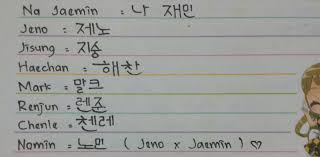 Na Jaemin : 나 재민
Jeno : 제노
Jisung : 지숭
Haechan : 해찬
Mark : 말크
Renjun : 렌준
Chenle : 첸레
Nomin : 노민 ( Jeno x Jaemin ) ♡